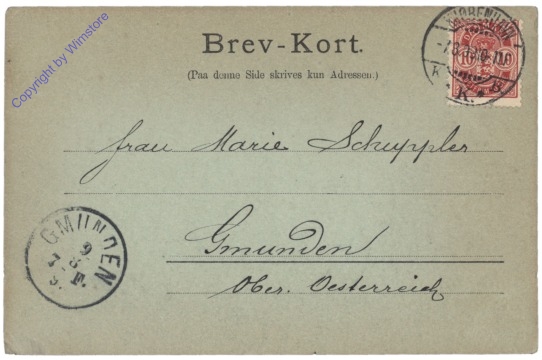 Brev-Kort.
(Paa denne Side skrives kun Adressen.)
KJØBENHAVN
K.
10 10
Frau Marie Schuppler
Gmunden
Ober. Oesterreich
GMUNDEN
9
8
7-F.
Copyright by Wimstore